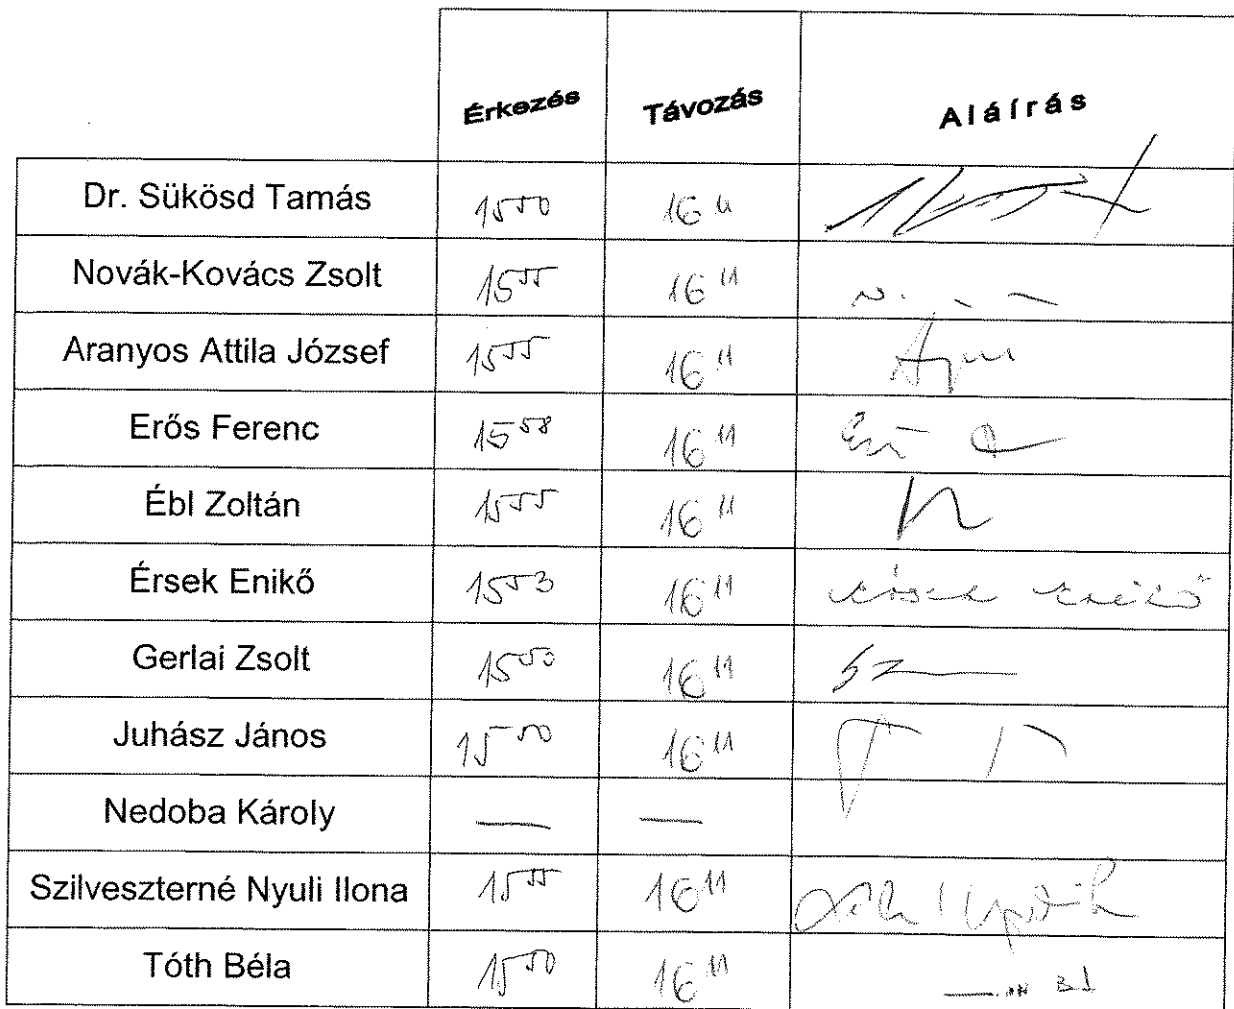 Érkezés Távozás Aláírás
Dr. Sükösd Tamás 15 50 16 11
Novák-Kovács Zsolt 15 55 16 11
Aranyos Attila József 15 55 16 11
Erős Ferenc 15 58 16 11
Ébl Zoltán 15 55 16 11
Érsek Enikő 15 53 16 11 Érsek Enikő
Gerlai Zsolt 15 50 16 11
Juhász János 15 50 16 11
Nedoba Károly — —
Szilveszterné Nyuli Ilona 15 55 16 11
Tóth Béla 15 50 16 11